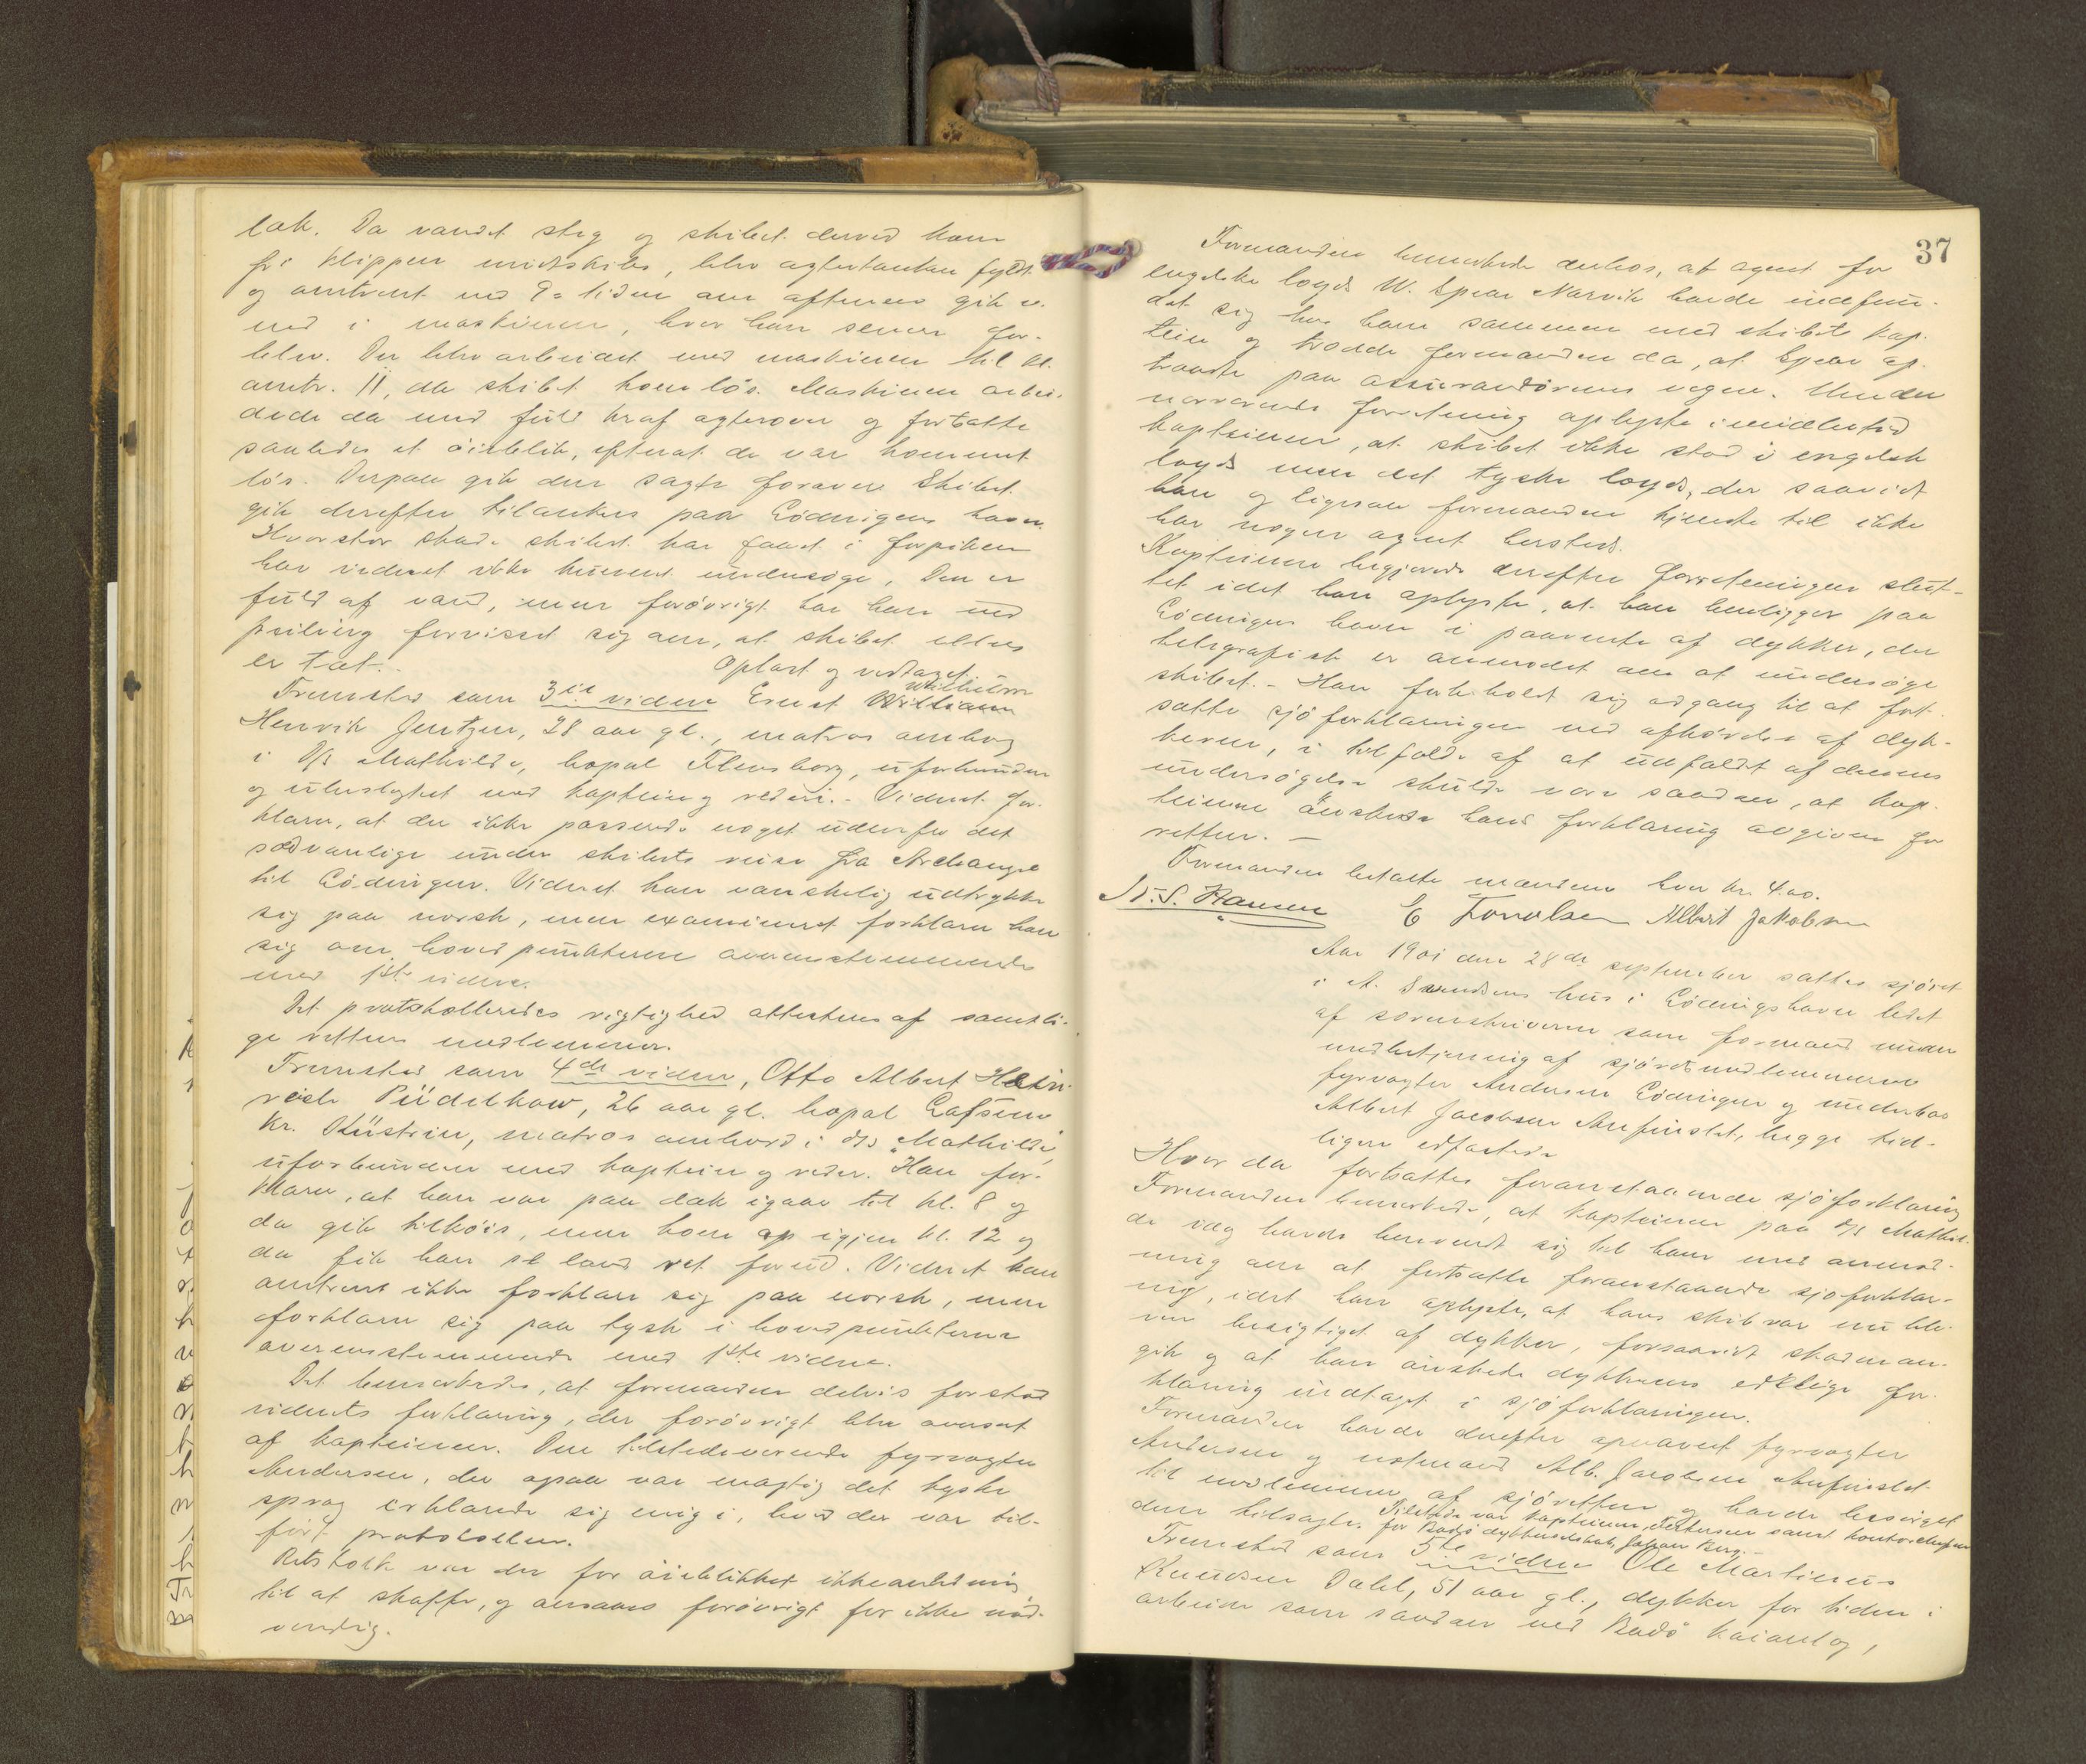 læk. Da vandet steg og skibet derved kom
fri klippen midtskibs, blev agtertanken fyldt
og omtrent ved 9-tiden om aftenen gik v.
ned i maskinen, hvor han senere for-
blev. Der blev arbeidet med maskinen til kl.
omtr. 11, da skibet kom løs. Maskinen arbei-
dede da med fuld kraf agterover og fortsatte
saaledes et øieblik, efterat de var kommet
løs. Derpaa gik den sagte forover. Skibet
gik derefter tilankers paa Lødingens havn.
Hvor stor skade skibet har faaet i forpiken
har vidnet ikke kunnet undersøge. Den er
fuld af vand, men forøvrigt har han ved
peiling forvisset sig om, at skibet ellers
er tæt.
Oplæst og vedtaget.
Wilhelm
Fremsted som 3die vidne Ernst William
Henrik Jentzen, 28 aar gl., matros ombord
i D/S Mathilde, bopæl Flensborg, uforbunden
og ubeslægtet med kaptein og rederi. - Vidnet for-
klarer, at der ikke passerede noget udenfor det
sædvanlige under skibets reise fra Archangel
til Lødingen. Vidnet kan vanskelig udtrykke
sig paa norsk, men examineret forklarer han
sig om hovedpunkterne overensstemmende
med 1ste vidne.
Det protokolleredes rigtighed attesteres af samtli-
ge rettens medlemmer.
Fremsted som 4de vidne, Otto Albert Hein-
rich Püdelkow, 26 aar gl. bopæl
Kr. Küstrin, matros ombord i D/S "Mathilde,
uforbunden med kaptein og reder. Han for-
klarer, at han var paa dæk igaar til kl. 8 og
da gik tilkøis, men kom op igjen kl. 12 og
da fik han se land ret forud. Vidnet kan
omtrent ikke forklare sig paa norsk, men
forklarer sig paa tysk i hovedpunkterne
overensstemmende med 1ste vidne.
Det bemerkedes, at formanden delvis forstod
vidnets forklaring, der forøvrigt blev oversat
af kapteinen. Den tilstedeværende fyrvogter
Andersen, der ogsaa var mægtig det tyske
sprog erklærede sig enig i, hvad der var til-
ført protokollen.
Retstolk var der for øieblikket ikke anledning
til at skaffe, og ansaaes forøvrigt for ikke nød-
vendig.
37
Formanden bemerkede derhos, at agent for
engelske loyds W. Spear Narvik havde indfun-
det sig hos ham sammen med skibets kap-
tein og trodde formanden da, at Spear op-
traadte paa assurandørernes vegne. Under
nærværende forretning oplyste imidlertid
kapteinen, at skibet ikke stod i engelsk
loyds men det tyske loyds, der saavidt
han og ligesaa formanden kjendte til ikke
har nogen agent hersteds.
Kapteinen begjærede derefter forretningen slut-
tet idet han oplyste, at han henligger paa
Lødingen havn i paavente af dykker, der
telegrafisk er anmodet om at undersøge
skibet. - Han forbeholdt sig adgang til at fort-
sætte sjøforklaringen ved afhørelse af dyk-
keren, i tilfælde af at udfaldt af dennes
undersøgelse skulde være saadan, at kap-
teinen ønskede hans forklaring avgiven for
retten. -
Formanden betalte mændene hver kr. 4.00.
N. S. Hansen E Tonnlsen Albert Jakobsen
Aar 1901 den 28de september sattes sjøret
i A. Svendsens hus i Lødingshavn ledet
af sorenskriveren som formand under
medbetjening af sjøretsmedlemmerne
fyrvogter Andersen Lødingen og underlos
Albert Jacobsen Aufinslet, begge tid-
ligere edfæstede
Hvor da fortsattes foranstaaende sjøforklaring
Formanden bemerkede, at kapteinen paa D/S Mathil-
de idag havde henvendt sig til ham med anmod-
ning om at fortsætte foranstaaende sjøforklar-
ing, idet han oplyste, at hans skib var nu ble-
ven besigtiget af dykker, forsaavidt skaden an-
gik og at han ønskede dykkerens edelige for-
klaring indtaget i sjøforklaringen.
Formanden havde derefter opnævnt fyrvogter
Andersen og underlos Alb. Jacobsen Aufinslet
til medlemmer af sjøretten og havde besørget
dem tilsagte. Tilstede var kapteinen samt kontorchefen
for Bodø dykkerselskab, Johan Berg. -
Fremsted som 5te vidne Ole Martinus
Knudsen Dahl, 51 aar gl., dykker for tiden i
arbeide som saadan ved Bodø kaianlæg,